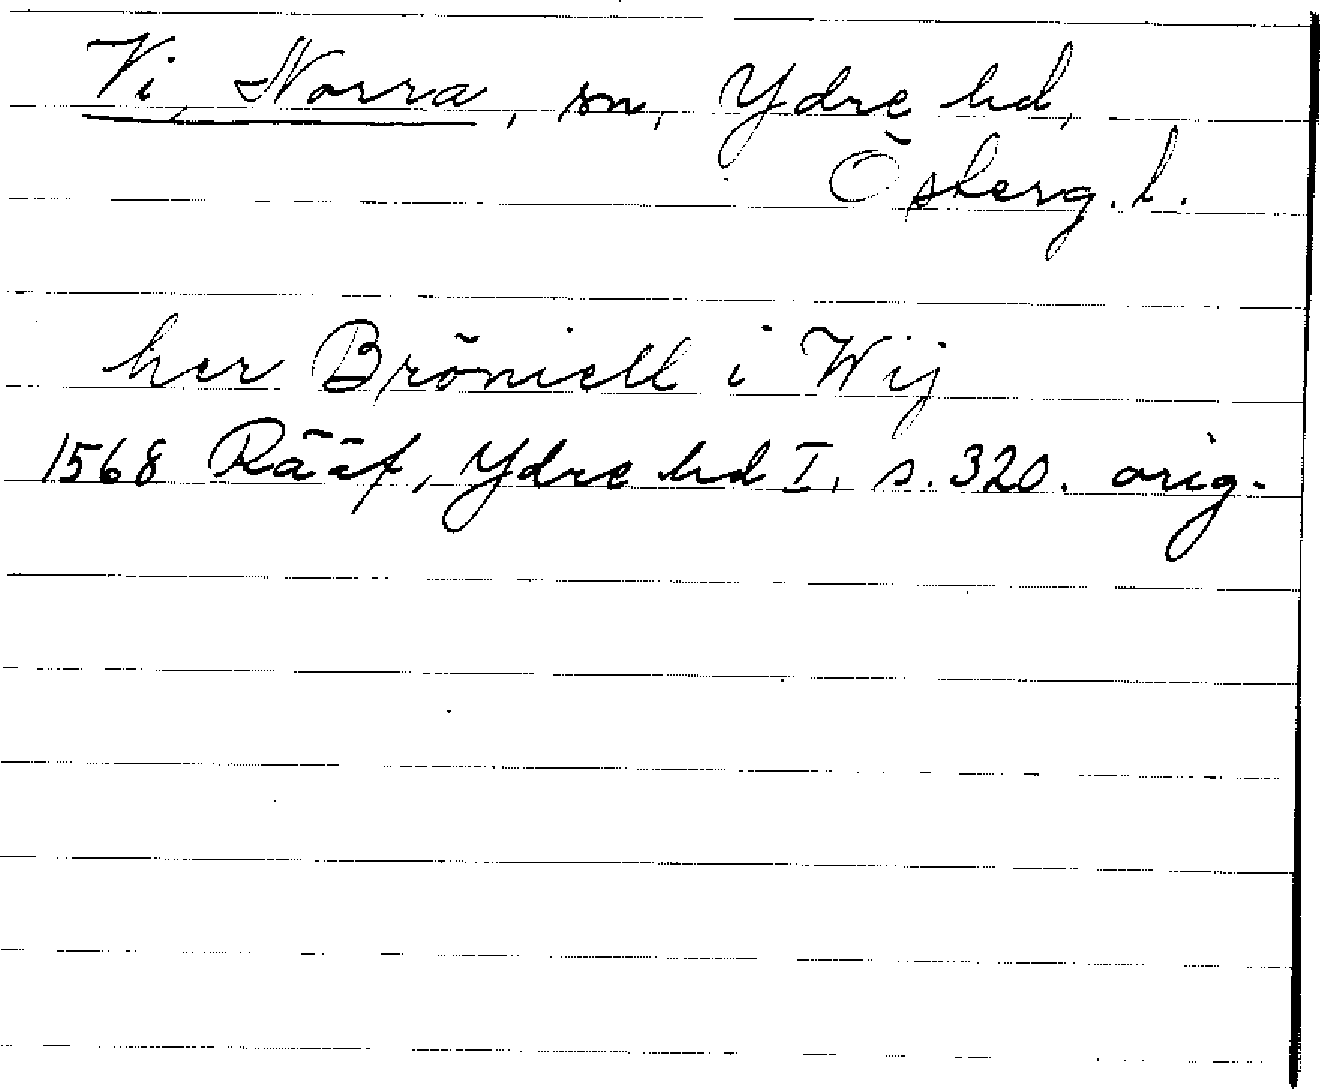 Vi, Norra, sn, Ydre hd,
Österg. l.
her Bröniell i Wij
1568 Rääf, Ydre hd I, s. 320. orig.